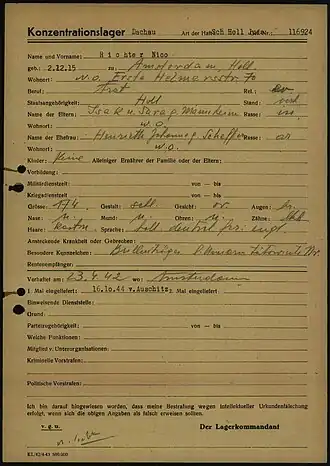 Konzentrationslager Dachau Art der Haft: Sch Holl Jude Nr. 116924
Name und Vorname: Richter Nico
geb.: 2.12.15 zu: Amsterdam, Holl.
Wohnort: w.o. Erste Helmersstr. 70
Beruf: Arzt Rel.:
Staatsangehörigkeit: Holl Stand: verh
Name der Eltern: Isak u. Sara g. Mannheim Rasse:
Wohnort: w.o.
Name der Ehefrau: Henrieth Johanna g. Scheffer Rasse: ar
Wohnort: w.o.
Kinder: keine Alleiniger Ernährer der Familie oder der Eltern:
Vorbildung:
Militärdienstzeit: von — bis
Kriegsdienstzeit: von — bis
Grösse: 174 Gestalt: schl. Gesicht: ov. Augen:
Nase: n. Mund: n. Ohren: n. Zähne:
Haare: kastn. Sprache: holl deutsch frz engl.
Ansteckende Krankheit oder Gebrechen:
Besondere Kennzeichen: Brillenträger
Rentenempfänger:
Verhaftet am: 23.4.42 wo: Amsterdam
1. Mal eingeliefert: 16.10.44 v. Auschwitz 2. Mal eingeliefert:
Einweisende Dienststelle:
Grund:
Parteizugehörigkeit: von — bis
Welche Funktionen:
Mitglied v. Unterorganisationen:
Kriminelle Vorstrafen:
Politische Vorstrafen:
Ich bin darauf hingewiesen worden, dass meine Bestrafung wegen intellektueller Urkundenfälschung
erfolgt, wenn sich die obigen Angaben als falsch erweisen sollten.
v. g. u. Der Lagerkommandant
KL/42/4.43 500.000